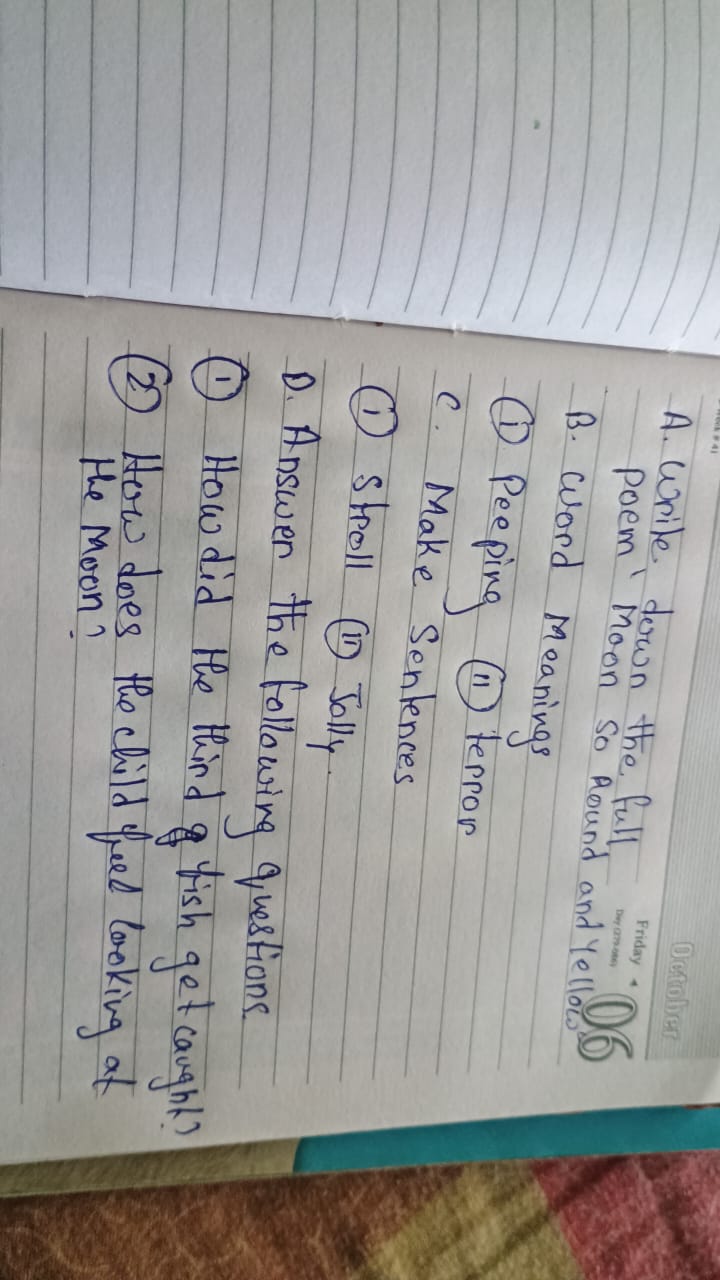 October
Friday
06
A. Write down the full
poem 'Moon So Round and Yellow'
B. Word Meanings
(i) Peeping (ii) terror
C. Make Sentences
(i) Stroll (ii) Jolly.
D. Answer the following questions.
(1) How did the third fish get caught?
(2) How does the child feel looking at
the Moon?